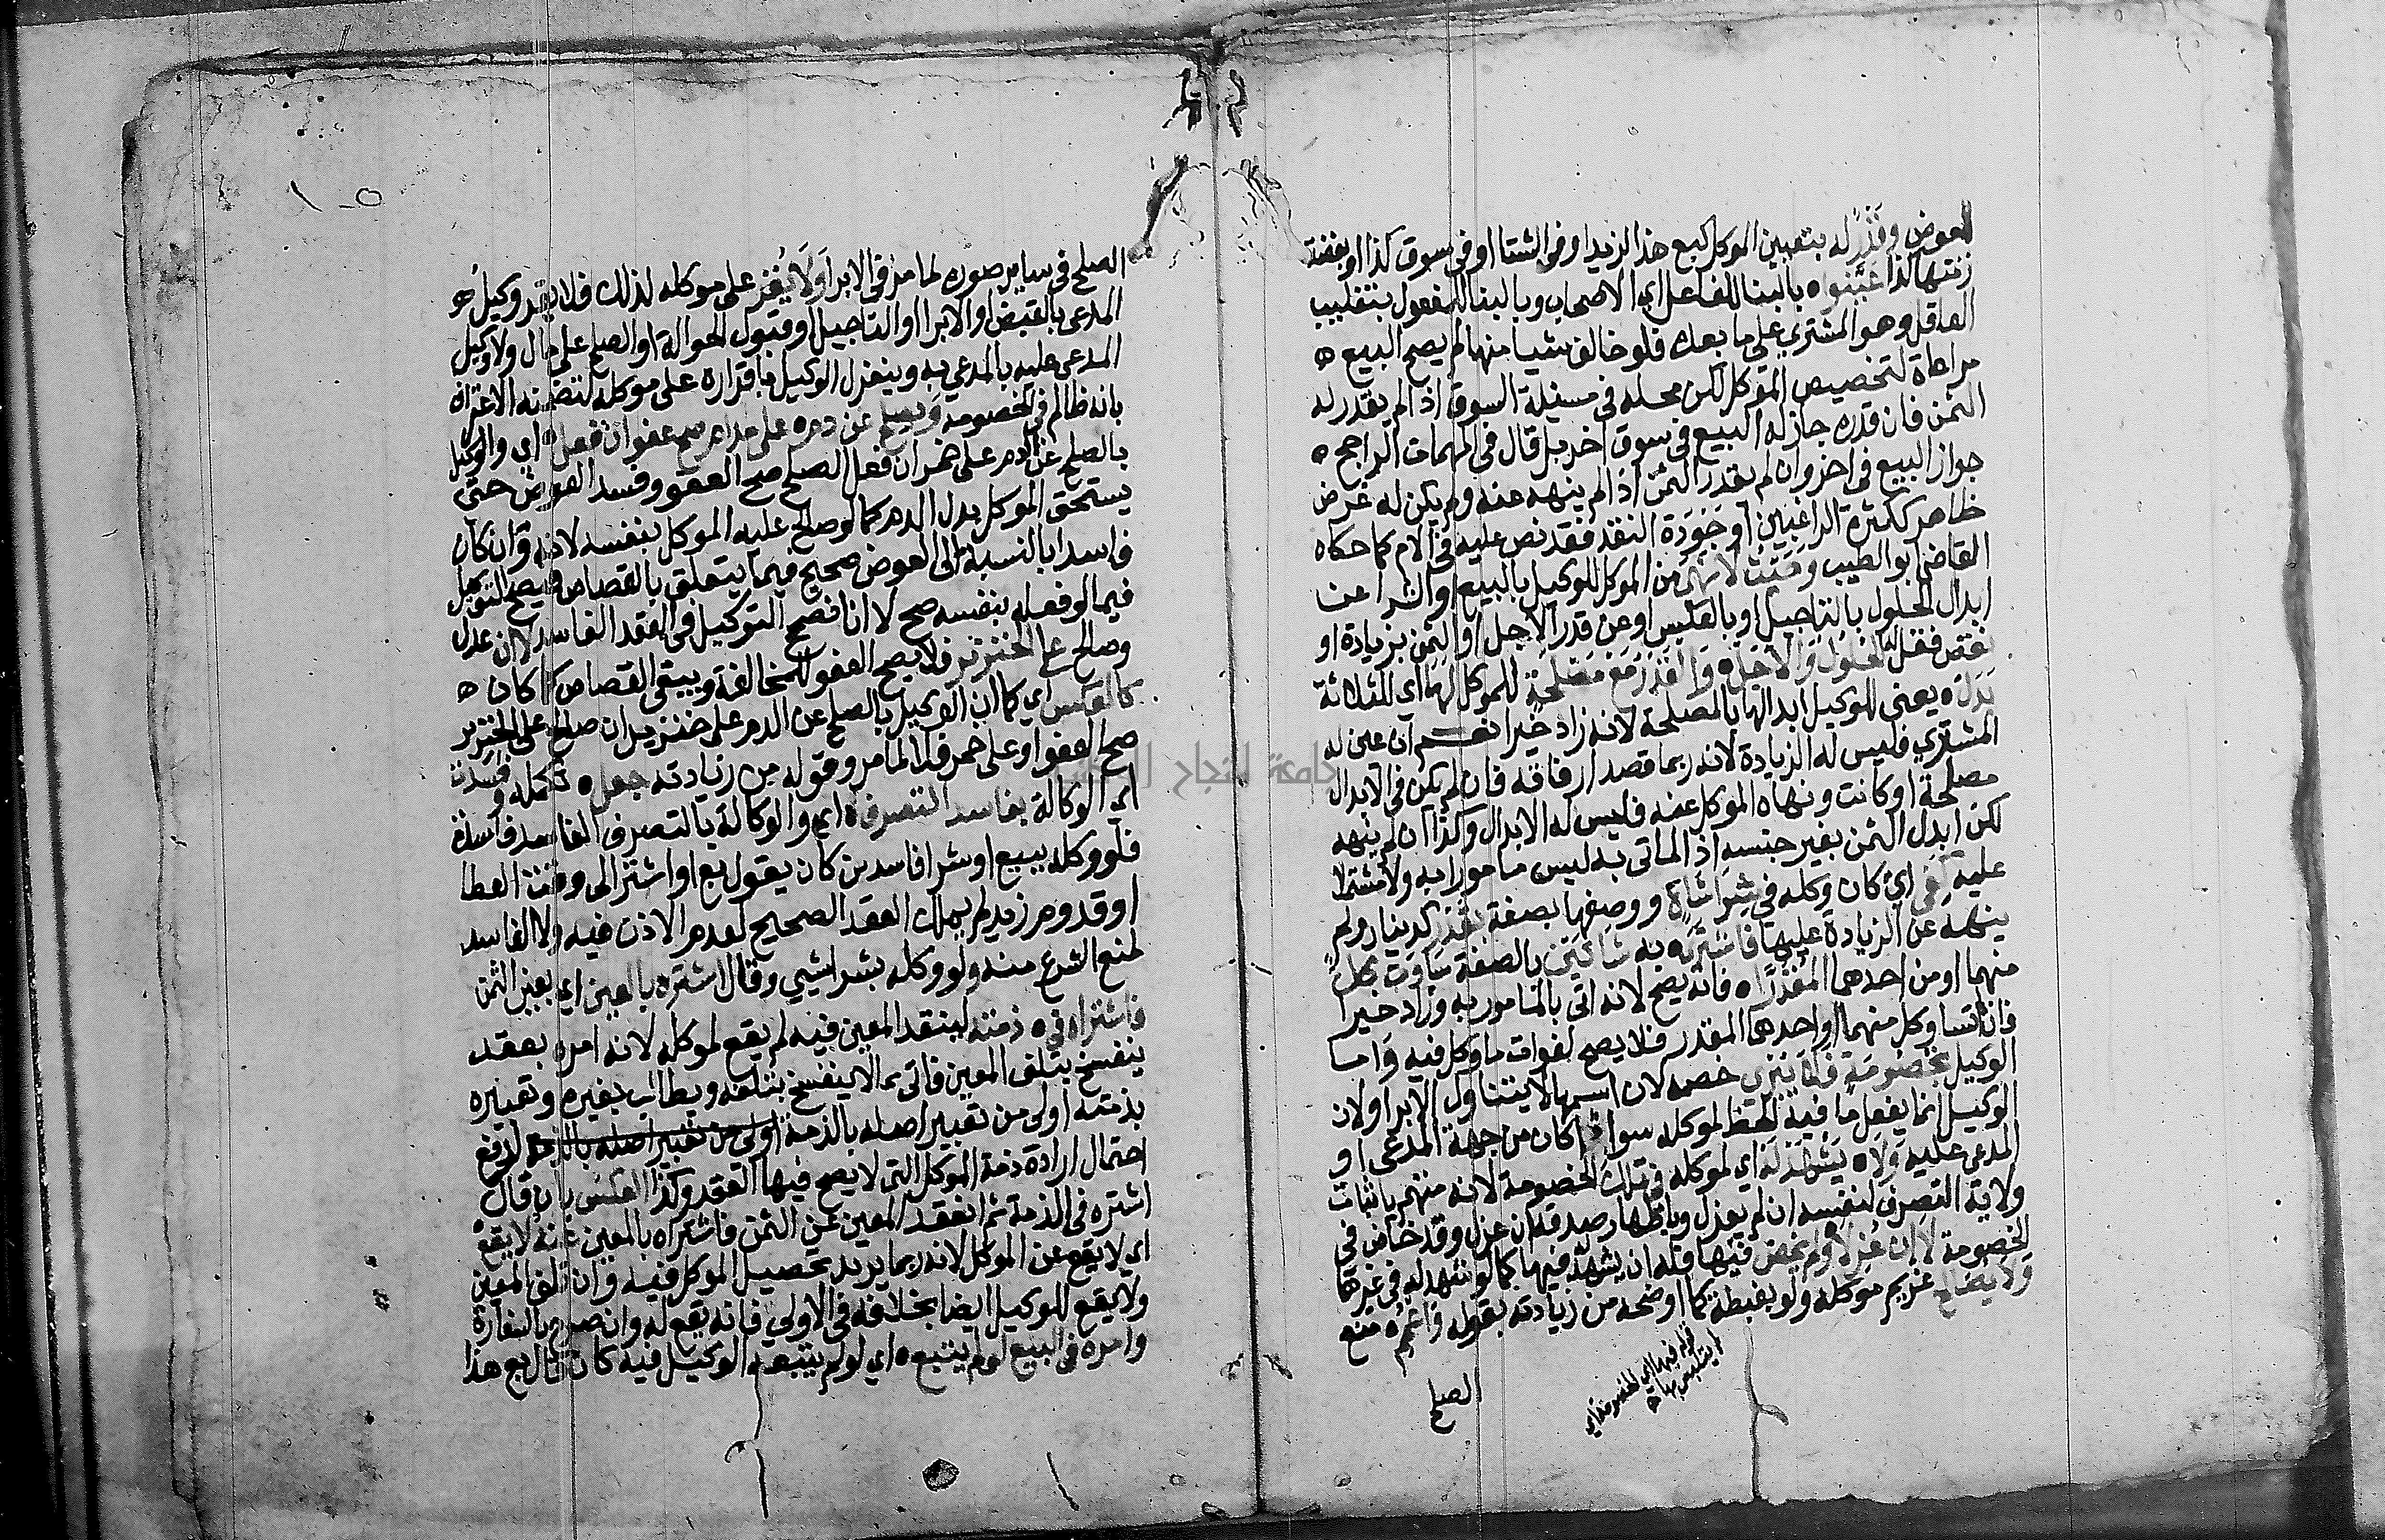 العوض وقدر له بتعيين الموكل كبع هذا لزيد او في الشتا او في سوق كذا او بفضة
زنتها لذا عينوا ه بالبنا للفاعل اي الاصحاب وبالبنا للمفعول بتغليب
العاقل وهو المشتري على ما بعده فلو خالف شيا منها لم يصح البيع ه
مراعاة لتخصيص الموكل لكن محله في مسئلة السوق اذا لم يقدر له
الثمن فان قدره جاز له البيع في سوق اخر بل قال في المهمات الراجح ه
جواز البيع في اخر وان لم يقدر الثمن اذا لم ينهه عنه ولم يكن له غرض
ظاهر ككثرة الراغبين او جودة النقد فقد نص عليه في الام كما حكاه
القاضي ابو الطيب وحيث لا نهي من الموكل للوكيل بالبيع او الشرا عن
ابدال الحلول بالتاجيل او بالعكس او عن قدر الاجل او الثمن بزيادة او
نقص فقل الحلول والاجل ه والقدر مع مصلحة للموكل لها اي الثلاثة
بدل ه يعني للوكيل ابدالها بالمصلحة لانه زاد خيرا نعم ان عين له
المشتري فليس له الزيادة لانه ربما قصد ارفاقه فان لم يكن في الابدال
مصلحة او كانت ونهاه الموكل عنه فليس له الابدال وكذا ان لم ينهه
لكن ابدل الثمن بغير جنسه اذ الماتي به ليس مامورا به ولا مشتملا
عليه في اي كان وكله في شرا شاة ووصفها بصفة بقدر كدينار ولم
ينهه عن الزيادة عليها فاشتره به شاتين بالصفة ساوت كل
منهما او من احدهما المقدرا ه فانه يصح لانه اتى بالمامور به وزاد خيرا
فان لم تساو كل منهما او احدهما المقدر فلا يصح لفوات ما وكل فيه واما
الوكيل بخصومة فما يبري خصمه لان اسمها لا يتناول الابرا ولان
الوكيل انما يفعل ما فيه الحظ لموكله سوا كان من جهة المدعي او
المدعى عليه ولا ه يشهد له اي لموكله في تلك الخصومة لانه متهم باثبات
ولاية التصرف لنفسه ان لم يعزل وباظهار صدقه ان عزل وقد خاض في
الخصومة لا ان عزلا ولم يخض فيها فله ان يشهد فيها كما لو شهد له في غيرها
ولا يصالح غريم موكله ولو بغبطة كما اوضحه من زيادته بقوله واعم ه منع
الصلح
الصلح في ساير صوره لما مر في الابرا ولا يقر على موكله لذلك فلا يقر وكيل ه
المدعي بالقبض او الابرا او التاجيل او قبول الحوالة او الصلح على مال ولا وكيل
المدعى عليه بالمدعى به وينعزل الوكيل باقراره على موكله لتضمنه الاعتراف
بانه ظالم في الخصومة ويصلح عن دم ه على مدام صح عفو ان فعل ه اي والوكيل
بالصلح عن الدم على خمر ان فعل الصلح صح العفو وفسد العوض حتى
يستحق الموكل بدل الدم كما لو صالح عليه الموكل بنفسه لانه وان كان
فاسدا بالنسبة الى العوض صحيح فيما يتعلق بالقصاص فيصح التوكيل
فيما لو فعله بنفسه صح لا انا نصحح التوكيل في العقد الفاسد لا ان عدل
وصالح على الخنزير فلا يصح العفو للمخالفة ويبقى القصاص كما كان ه
كالعكس اي كما ان الوكيل بالصلح عن الدم على خنزير ان صالح على الخنزير
صح العفو او على خمر فلا لما مر وقوله من زيادته جعل ه تكمله وفسدت
اي الوكالة بفاسد التصرف ه اي والوكالة بالتصرف الفاسد فاسدة
فلو وكله ببيع او شرا فاسدين كان يقول بع او اشتر الى وقت العطا
او قدوم زيد لم يملك العقد الصحيح لعدم الاذن فيه ولا الفاسد
لمنع الشرع منه ولو وكله بشرا شيي وقال اشتره بالعين اي بعين الثمن
فاشتراه في ه ذمته لينقد المعين فيه لم يقع لموكله لانه امره بعقد
ينفسخ بتلف المعين فاتى بما لا ينفسخ بتلفه ويطالب بغيره وتعبيره
بذمته اولى من تعبير اصله بالذمة اولى من تعبير اصله بالذمة لدفع
احتمال ارادة ذمة الموكل التي لا يصح فيها العقد وكذا العكس بان قال
اشتره في الذمة ثم انقد المعين عن الثمن فاشتراه بالمعين عنه لا يقع
اي لا يقع عن الموكل لانه ربما يريد تحصيل الموكل فيه وان تلف المعين
ولا يقع للوكيل ايضا بخلافه في الاولى فانه يقع له وان صرح بالسفارة
وامره في البيع لو لم يتبع ه اي لو لم يتبعه الوكيل فيه كان قال بع هذا